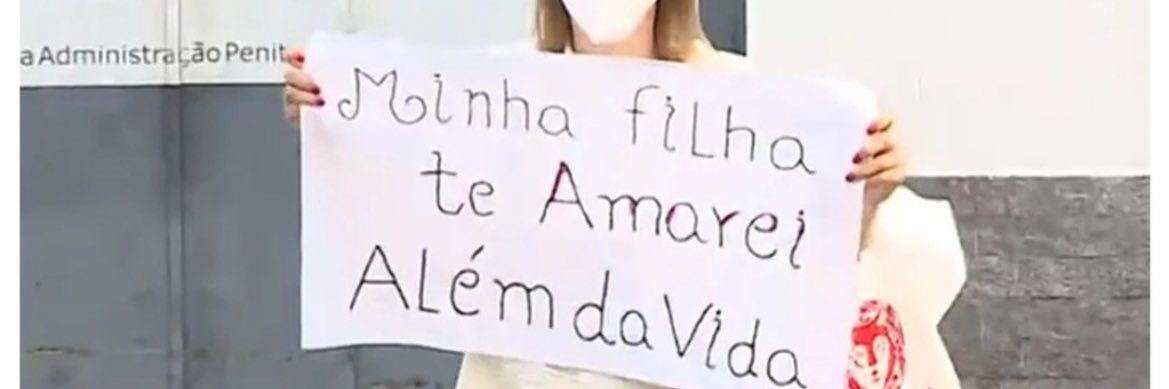 a Administração Penit
Minha filha
te Amarei
Além da Vida